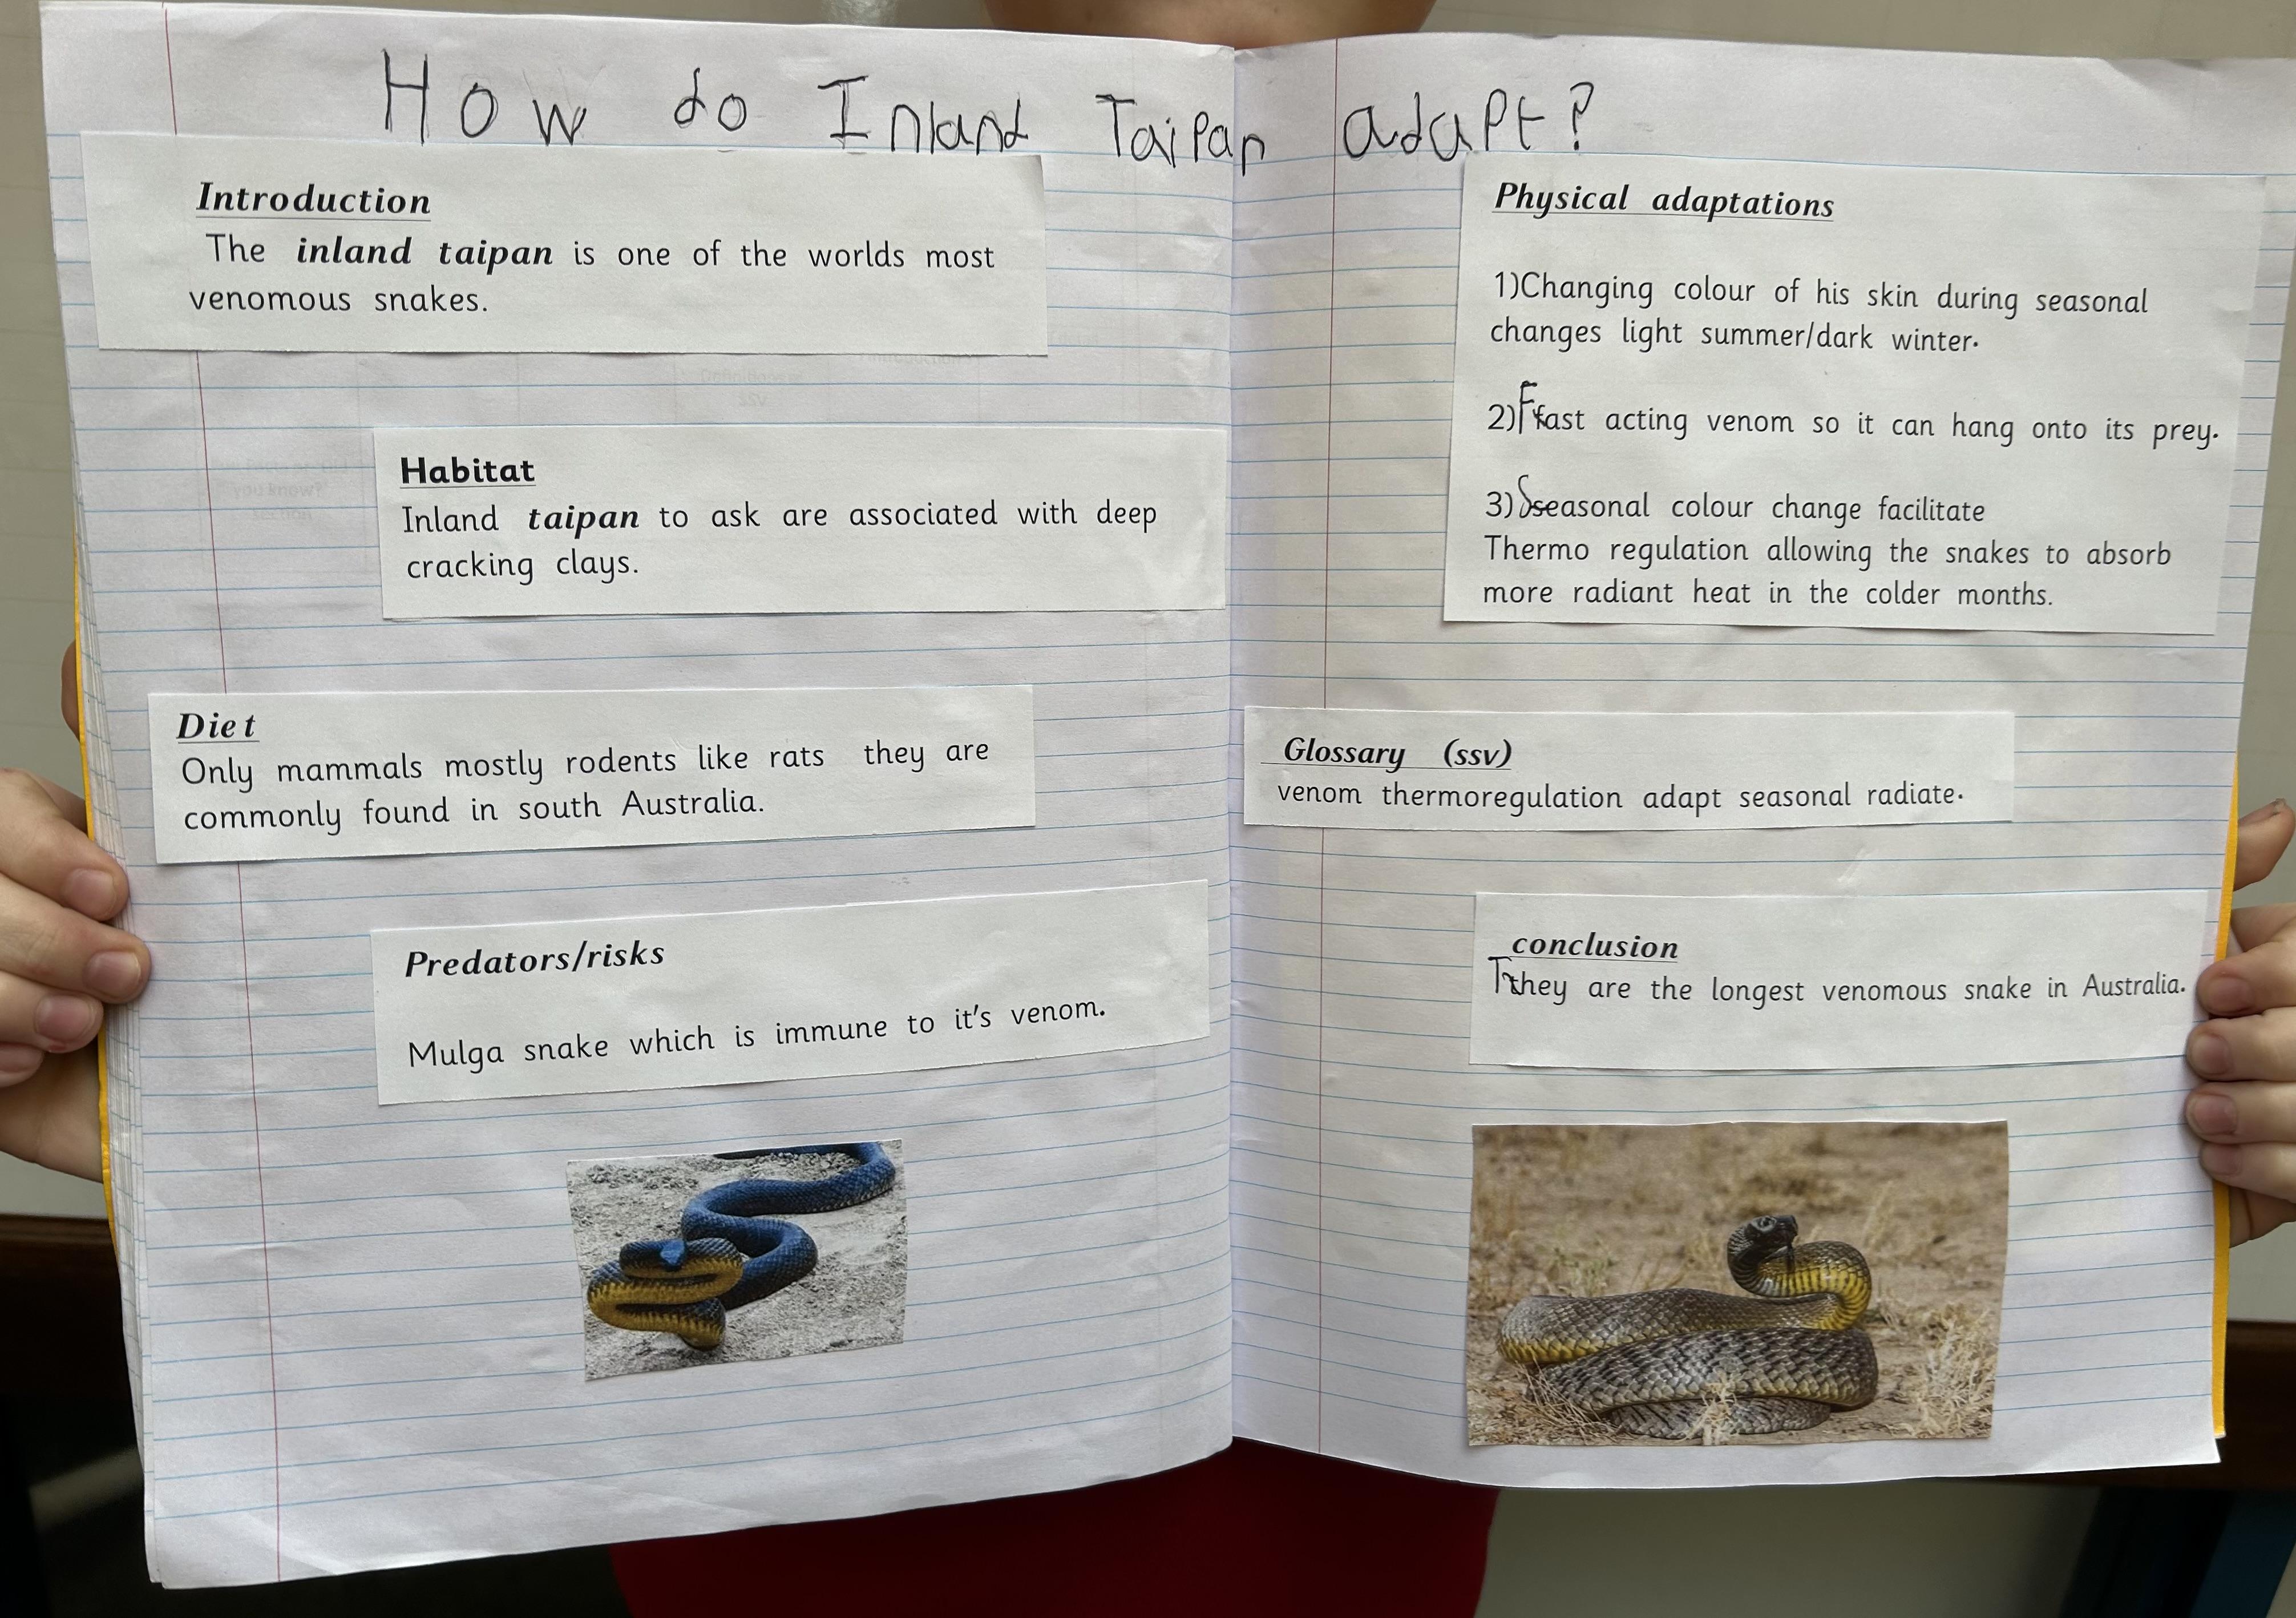 How do Inland Taipan adapt?
Introduction
The inland taipan is one of the worlds most
venomous snakes.
Habitat
Inland taipan to ask are associated with deep
cracking clays.
Diet
Only mammals mostly rodents like rats they are
commonly found in south Australia.
Predators/risks
Mulga snake which is immune to it's venom.
Physical adaptations
1)Changing colour of his skin during seasonal
changes light summer/dark winter.
2)Fast acting venom so it can hang onto its prey.
3)Seasonal colour change facilitate
Thermo regulation allowing the snakes to absorb
more radiant heat in the colder months.
Glossary (ssv)
venom thermoregulation adapt seasonal radiate.
conclusion
They are the longest venomous snake in Australia.